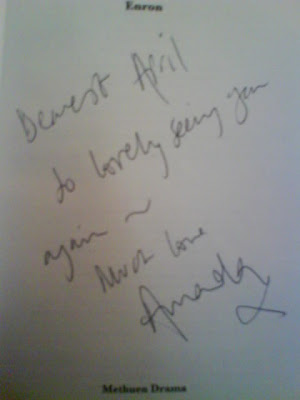 Enron
Dearest April
so lovely seeing you
again ~
Much love
Amanda
Methuen Drama